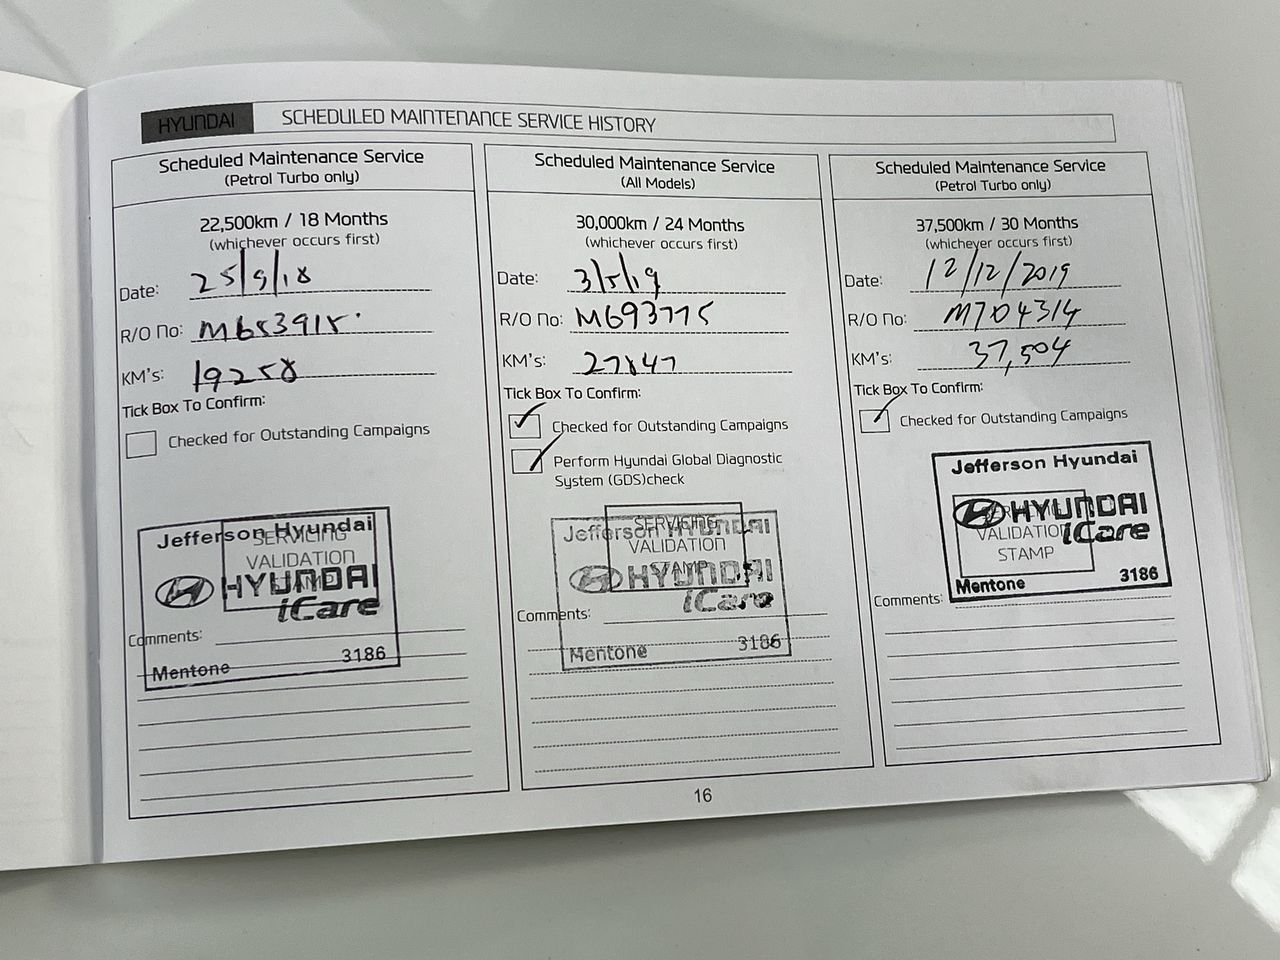 HYUNDAI SCHEDULED MAINTENANCE SERVICE HISTORY
Scheduled Maintenance Service
(Petrol Turbo only)
22,500km / 18 Months
(whichever occurs first)
Date: 25/9/18
R/O No: M653915
KM's: 19258
Tick Box To Confirm:
Checked for Outstanding Campaigns
Jefferson Hyundai
SERVICING
VALIDATION
STAMP
HYUNDAI
iCare
Comments:
Mentone 3186
Scheduled Maintenance Service
(All Models)
30,000km / 24 Months
(whichever occurs first)
Date: 3/5/19
R/O No: M693775
KM's: 27847
Tick Box To Confirm:
Checked for Outstanding Campaigns
Perform Hyundai Global Diagnostic
System (GDS)check
Jefferson Hyundai
SERVICING
VALIDATION
STAMP
HYUNDAI
iCare
Comments:
Mentone 3186
Scheduled Maintenance Service
(Petrol Turbo only)
37,500km / 30 Months
(whichever occurs first)
Date: 12/12/2019
R/O No: M704314
KM's: 37,504
Tick Box To Confirm:
Checked for Outstanding Campaigns
Jefferson Hyundai
HYUNDAI
SERVICING
VALIDATION
iCare
STAMP
Mentone 3186
Comments:
16